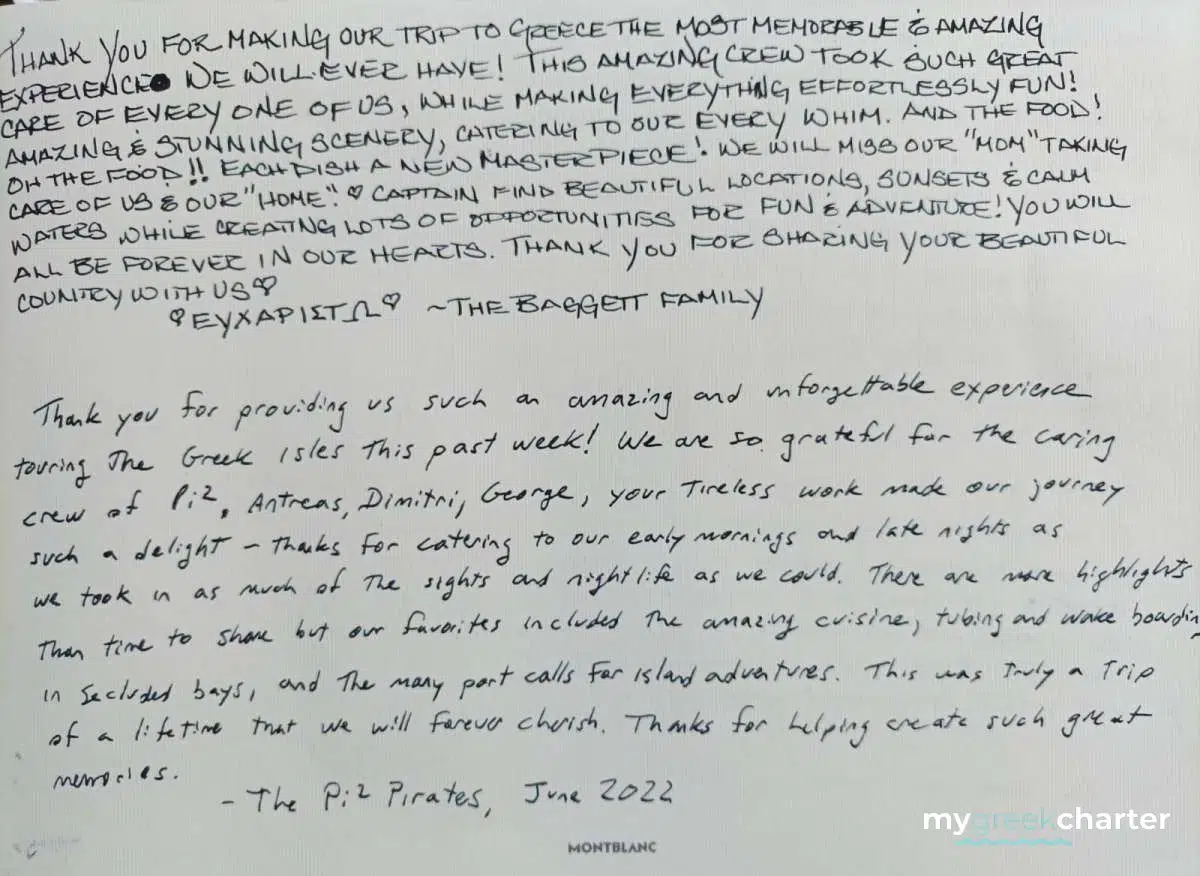 THANK YOU FOR MAKING OUR TRIP TO GREECE THE MOST MEMORABLE & AMAZING
EXPERIENCE WE WILL EVER HAVE! THIS AMAZING CREW TOOK SUCH GREAT
CARE OF EVERY ONE OF US, WHILE MAKING EVERYTHING EFFORTLESSLY FUN!
AMAZING & STUNNING SCENERY, CATERING TO OUR EVERY WHIM. AND THE FOOD!
OH THE FOOD!! EACH DISH A NEW MASTERPIECE! WE WILL MISS OUR "MOM" TAKING
CARE OF US & OUR "HOME". ♡ CAPTAIN FIND BEAUTIFUL LOCATIONS, SUNSETS & CALM
WATERS WHILE CREATING LOTS OF OPPORTUNITIES FOR FUN & ADVENTURE! YOU WILL
ALL BE FOREVER IN OUR HEARTS. THANK YOU FOR SHARING YOUR BEAUTIFUL
COUNTRY WITH US ♡
♡ ΕΥΧΑΡΙΣΤΩ ♡ ~THE BAGGETT FAMILY
Thank you for providing us such an amazing and unforgettable experience
touring The Greek Isles this past week! We are so grateful for the caring
crew of Pi², Antreas, Dimitri, George, your tireless work made our journey
such a delight - thanks for catering to our early mornings and late nights as
we took in as much of the sights and nightlife as we could. There are more highlights
than time to share but our favorites included the amazing cuisine, tubing and wake boarding
in secluded bays, and the many port calls for island adventures. This was truly a trip
of a lifetime that we will forever cherish. Thanks for helping create such great
memories.
- The Pi² Pirates, June 2022
mygreekcharter
MONTBLANC